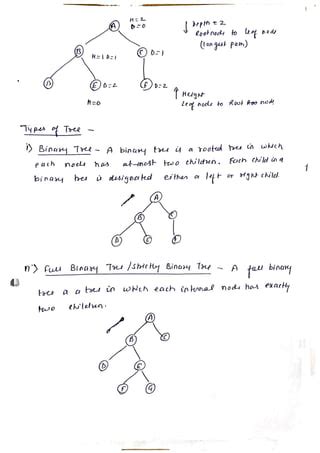 H=2
D=0
A
↓ Depth = 2
Root node to leaf node
(longest path)
B H=1 D=1 C D=1
D E D=2 F D=2
H=0
↑ Height
Leaf node to Root node
Types of Tree -
i) Binary Tree - A binary tree is a rooted tree in which
each node has at-most two children. Each child in a
binary tree is designated either a left or right child
A
B C
D E F
ii) Full Binary Tree / Strictly Binary Tree - A full binary
tree is a tree in which each internal node has exactly
two children.
A
B C
D E
F G